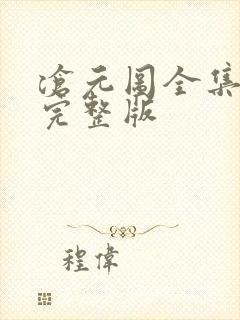 滄元圖全集
完整版
程偉